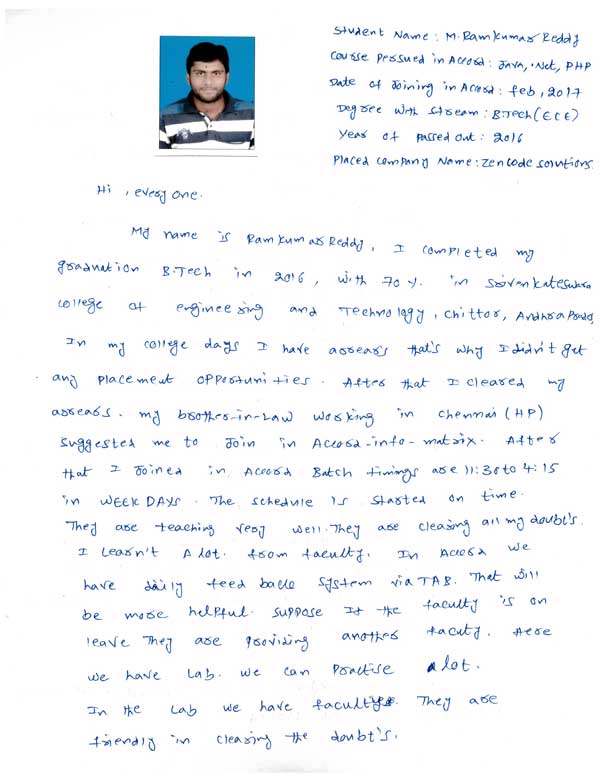 Student Name : M. Ramkumar Reddy
Course persued in Accord : Java, .Net, PHP
Date of Joining in Accord : feb, 2017
Degree with stream : B.Tech (ECE)
Year of passed out : 2016
Placed company Name : zencode solutions.
Hi , every one.
My name is Ramkumar Reddy , I completed my
graduation B.Tech in 2016 , with 70 %. in Srivenkateswara
college of engineering and Technology , chittor, Andhra Prades,
In my college days I have arrears that's why I didn't get
any placement opportunities . After that I cleared my
arrears . my brother-in-Law working in chennai (HP)
suggested me to Join in Accord-info-matrix. After
that I Joined in Accord Batch timings are 11:30 to 4:15
in WEEK DAYS . The schedule is started on time.
They are teaching very well. They are clearing all my doubt's.
I learn't A lot. from faculty. In Accord we
have daily feed back system via TAB. That will
be more helpful. suppose If the faculty is on
leave They are providing another faculty . Here
we have Lab. we can practise a lot.
In the Lab we have faculty's. They are
friendly in clearing the doubt's.